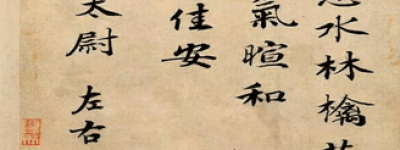 水林檎
氣暄和
佳安
太尉 左右